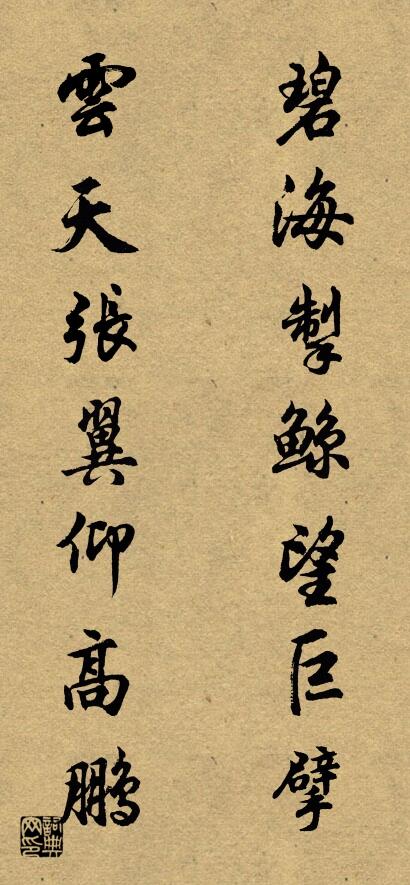 碧海掣鲸望巨擘
雲天張翼仰高鹏
詞典网印